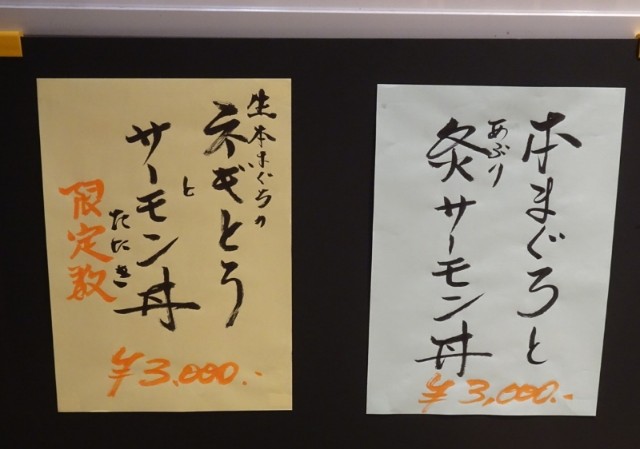 本まぐろと
炙サーモン丼
あぶり
¥3,000.-
生本まぐろの
ネギとろ
と
サーモン丼
たたき
限定数
¥3.000.-